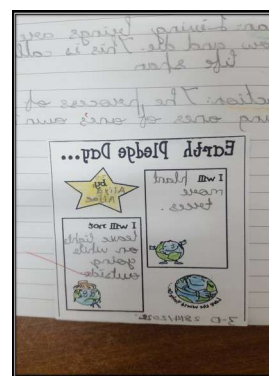 Living beings are
and die. This is
life span
The process of
ones of ones own
Earth Pledge Day...
I will plant
more
trees.
by
I will not
leave lights
on while
going
outside
3-D